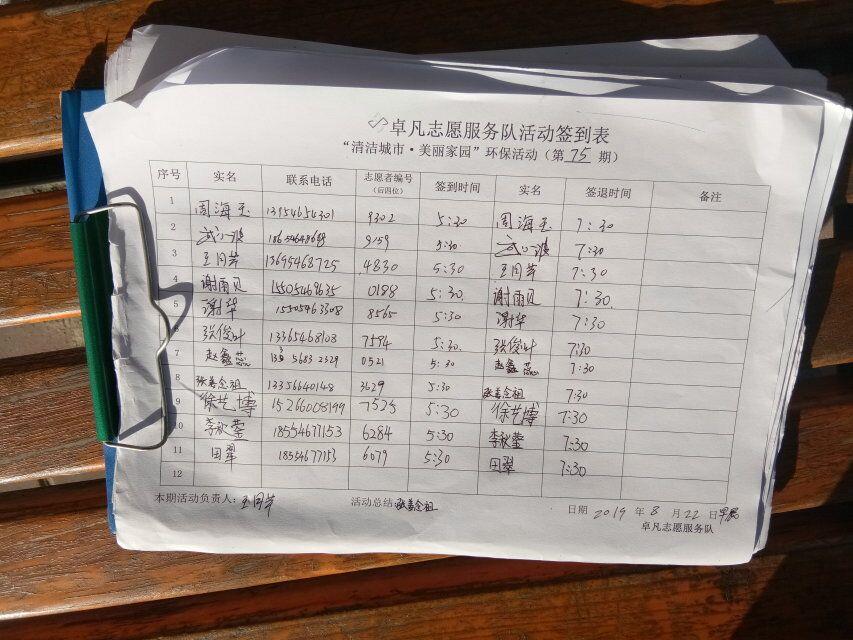 卓凡志愿服务队活动签到表
“清洁城市·美丽家园”环保活动（第 75 期）
序号 实名 联系电话 志愿者编号（后四位） 签到时间 实名 签退时间 备注
1 周海玉 13954654301 9302 5:30 周海玉 7:30
2 武小波 9159 5:30 武小波 7:30
3 王同芹 13695468725 4830 5:30 王同芹 7:30
4 谢雨贝 15505469635 0188 5:30. 谢雨贝 7:30.
5 谢华 15505463308 8565 5:30 谢华 7:30
6 张俊叶 13365468108 7594 5:30. 张俊叶 7:30
7 赵鑫蕊 0521 5:30 赵鑫蕊 7:30
8 张姜全祖 13356640148 3629 5:30 张姜全祖 7:30
9 徐艺博 15266008199 7525 5:30 徐艺博 7:30
10 李秋莹 18554677153 6284 5:30 李秋莹 7:30
11 田翠 18554677153 6079 5:30 田翠 7:30
12
本期活动负责人：王同芹 活动总结 张姜全祖 日期 2019 年 8 月 22 日早晨
卓凡志愿服务队